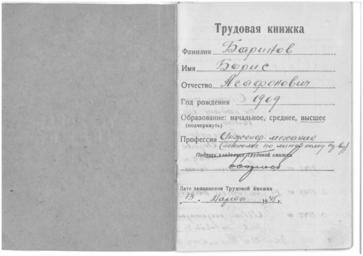 Трудовая книжка
Фамилия Баринов
Имя Борис
Отчество Агафонович
Год рождения 1909
Образование: начальное, среднее, высшее
(подчеркнуть)
Профессия Инженер-механик
Подпись владельца Трудовой книжки
Дата заполнения Трудовой книжки
13 Марта